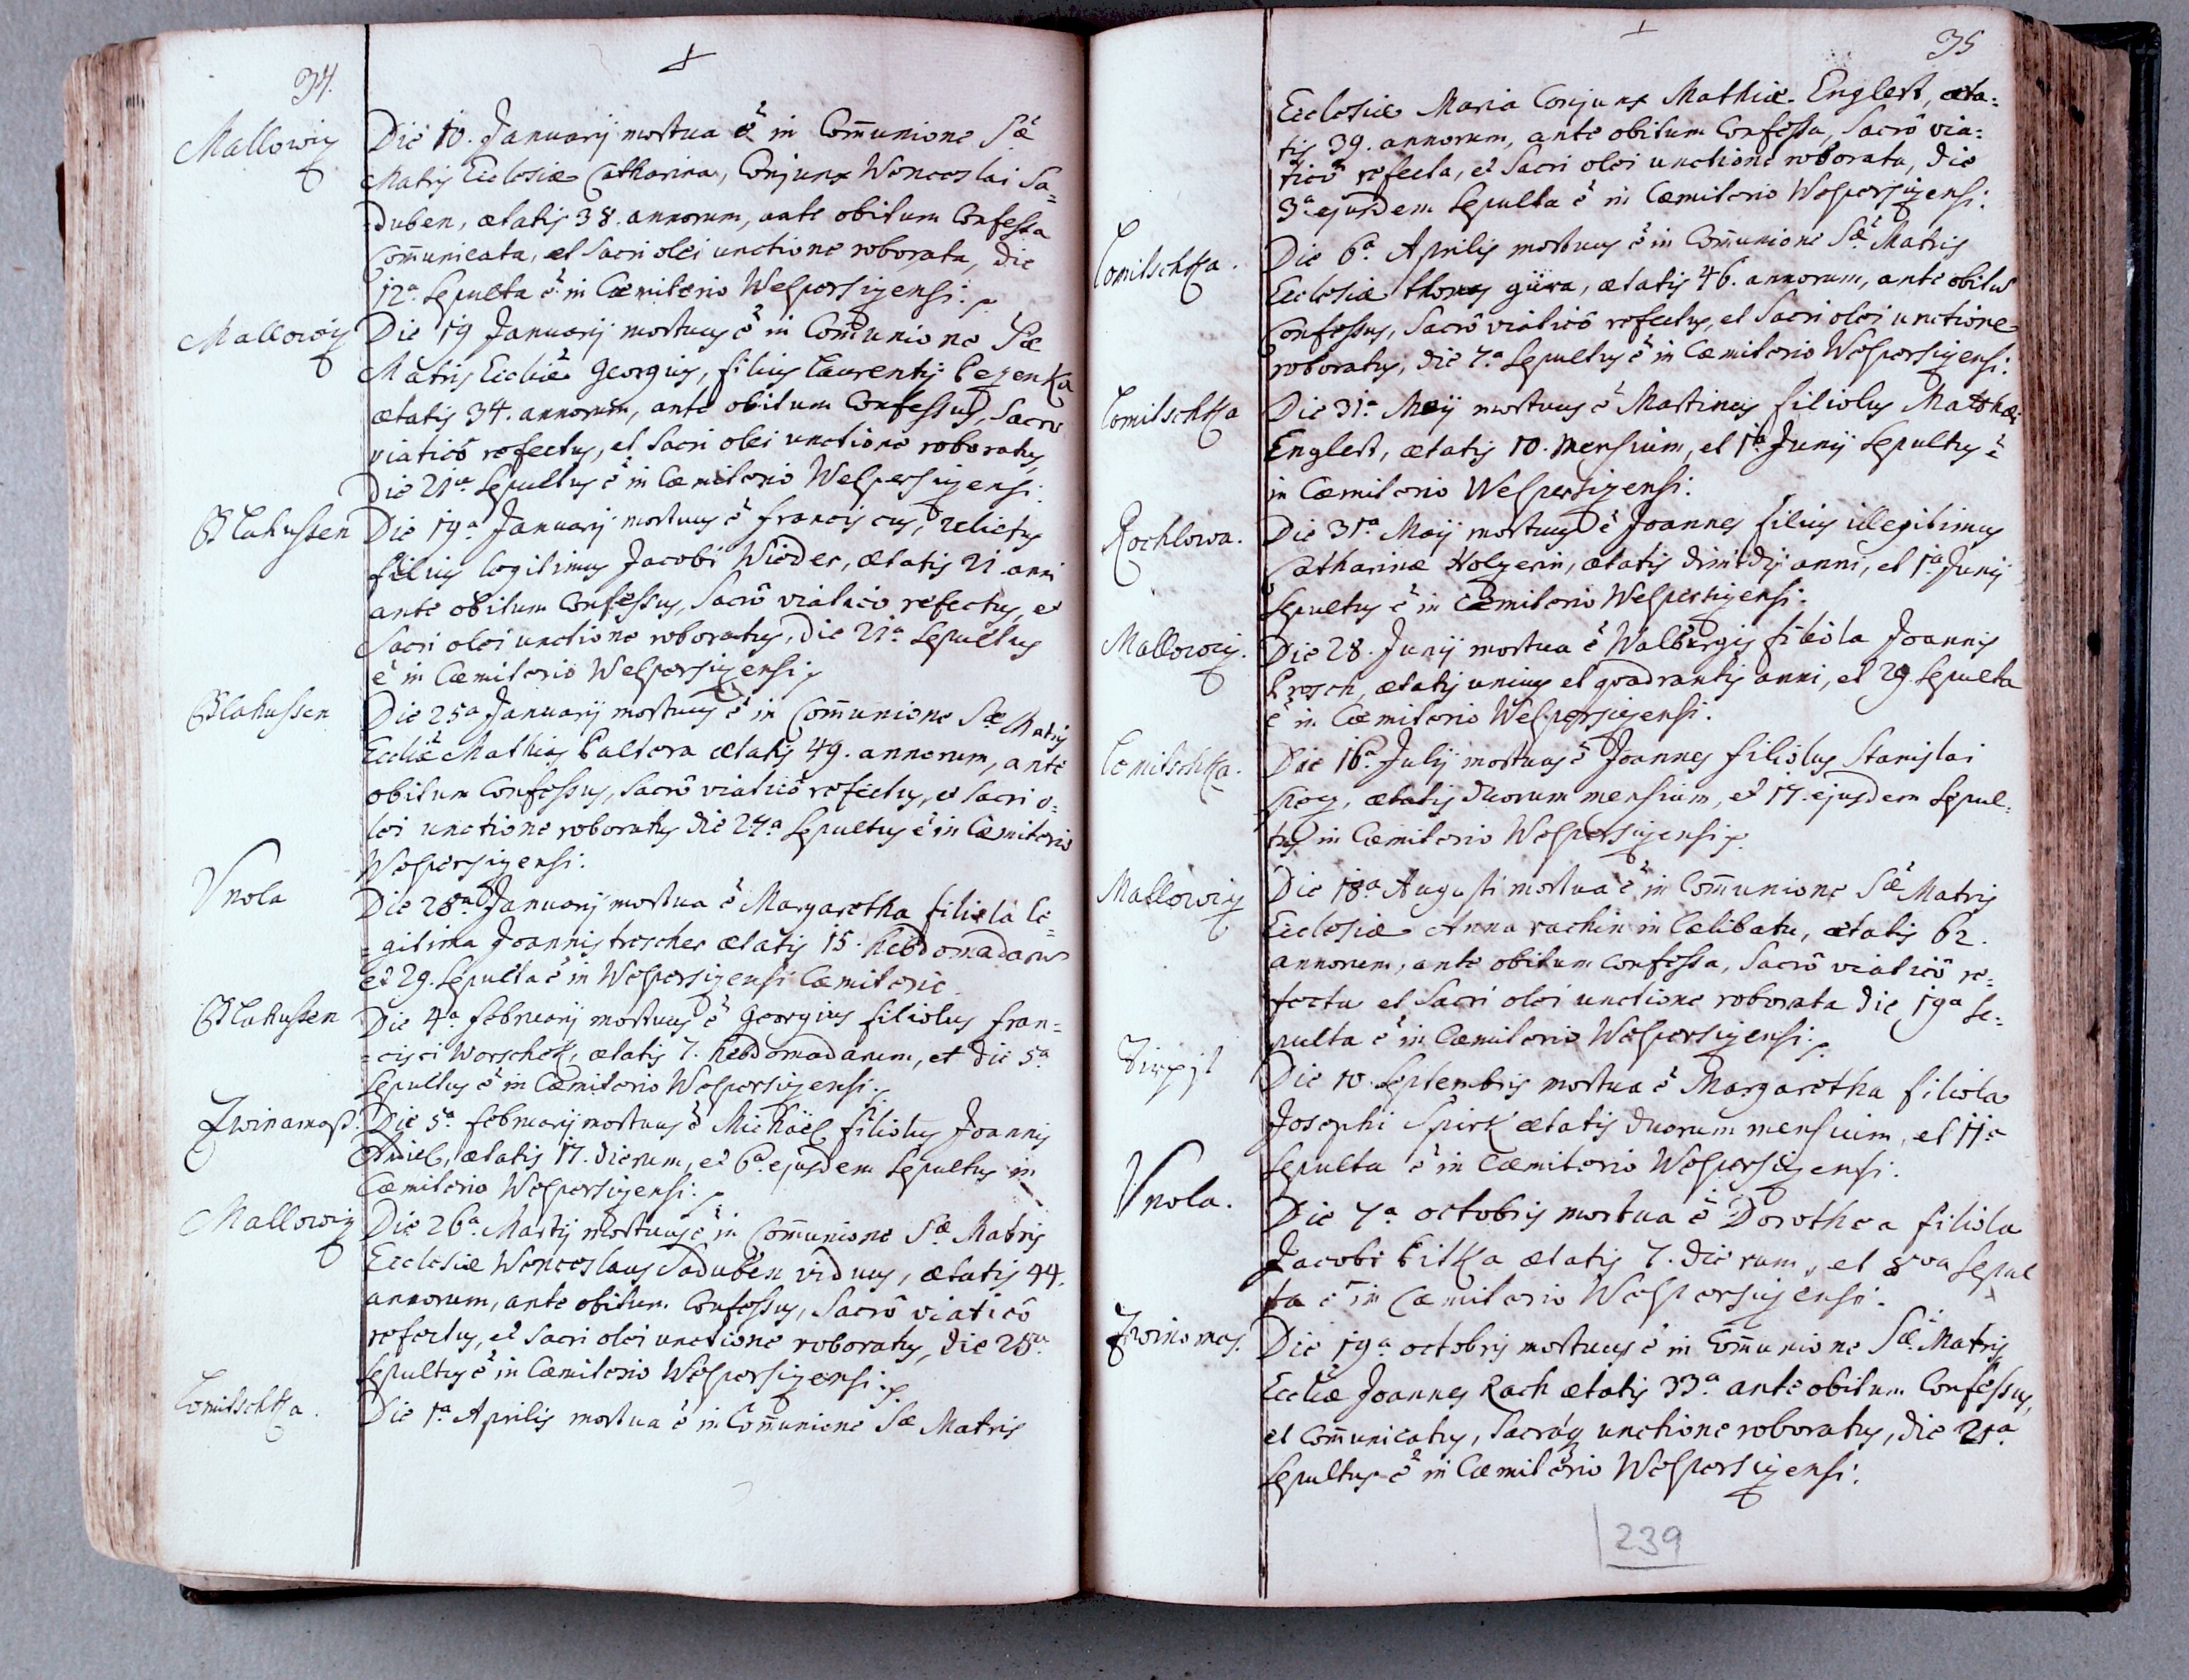 34.
+
Mallowiz
Die 10. Januarij mortua ẽ in Com̄unione Sæ
Matris Ecclesiæ Catharina, Conjunx Wenceslai Sa=
=duben, ætatis 38. annorum, ante obitum Confessa
Com̄unicata, et Sacri olei unctione roborata, die
12a. Sepulta ẽ in Cæmiterio Welpersizensi.
Mallowiz
Die 19 Januarij mortuus ẽ in Com̄unione Sæ
Matris Eccliæ Georgius, filius Laurentij Pezenka
ætatis 34. annorum, ante obitum Confessus, Sacro
viaticô refectus, et Sacri olei unctione roboratus,
Die 21a Sepultus ẽ in Cæmiterio Welpersizensi.
Blahussen
Die 19a Januarij mortuus ẽ franciscus, relictus
filius legitimus Jacobi Wieder, ætatis 21 anni
ante obitum Confessus, Sacrô viaticô refectus, et
Sacri olei unctione roboratus, die 21a Sepultus
ẽ in Cæmiterio Welpersizensi.
Blahussen
Die 25a Januarij mortuus ẽ in Com̄unione Sæ Matris
Eccliæ Mathias Paltera ætatis 49. annorum, ante
obitum Confessus, Sacrô viaticô refectus, et Sacri o=
lei unctione roboratus die 27a Sepultus ẽ in Cæmiterio
Welpersizensi.
Vnola
Die 28a Januarij mortua ẽ Margaretha filiola le=
=gitima Joannis trescher ætatis 15. hebdomadarum
et 29. Sepulta ẽ in Welpersizensi Cæmiterio.
Blahussen
Die 4a februarij mortuus ẽ Georgius filiolus fran=
=cisci Worschek, ætatis 7. hebdomadarum, et die 5a
Sepultus ẽ in Cæmiterio Welpersizensi.
Zwinamass.
Die 5a februarij mortuus ẽ Michaël filiolus Joannis
ætatis 17. dierum, et 6a ejusdem Sepultus in
Cæmiterio Welpersizensi.
Mallowiz
Die 26a Martij mortuus ẽ in Com̄unione Sæ Matris
Ecclesiæ Wenceslaus Saduben viduus, ætatis 44.
annorum, ante obitum Confessus, Sacrô viaticô
refectus, et Sacri olei unctione roboratus, die 28a
Sepultus ẽ in Cæmiterio Welpersizensi.
Lomitschka.
Die 1a Aprilis mortua ẽ in Com̄unione Sæ Matris
+
35
Ecclesiæ Maria Conjunx Mathiæ Englert, æta=
tis 39. annorum, ante obitum Confessa, Sacrô via=
ticô refecta, et Sacri olei unctione roborata, die
3a ejusdem Sepulta ẽ in Cæmiterio Welpersizensi.
Lomitschka.
Die 6a Aprilis mortuus ẽ in Com̄unione Sæ Matris
Ecclesiæ thomas giira, ætatis 46. annorum, ante obitum
Confessus, Sacrô viaticô refectus, et Sacri olei unctione
roboratus, die 7a Sepultus ẽ in Cæmiterio Welpersizensi.
Lomitschka
Die 31a Maij mortuus ẽ Martinus filiolus Matthæi
Englert, ætatis 10. mensium, et 1a Junij Sepultus ẽ
in Cæmiterio Welpersizensi.
Rochlowa.
Die 31a Maij mortuus ẽ Joannes filius illegitimus
Catharinæ Holzerin, ætatis dimidij anni, et 1a Junij
Sepultus ẽ in Cæmiterio Welpersizensi.
Mallowiz.
Die 28. Junij mortua ẽ Walburgis filiola Joannis
ætatis unius et quadrantis anni, et 29. Sepulta
ẽ in Cæmiterio Welpersizensi.
Lomitschka.
Die 16a Julij mortuus ẽ Joannes filiolus Stanislai
ætatis duorum mensium, et 17. ejusdem Sepul=
tus in Cæmiterio Welpersizensi.
Mallowiz
Die 18a Augusti mortua ẽ in Com̄unione Sæ Matris
Ecclesiæ Anna rachin in Cælibatu, ætatis 62.
annorum, ante obitum Confessa, Sacrô viaticô re=
fecta et Sacri olei unctione roborata die 19a Se=
pulta ẽ in Cæmiterio Welpersizensi.
Die 10. Septembris mortua ẽ Margaretha filiola
Josephi Spirk ætatis duorum mensium, et 11a
Sepulta ẽ in Cæmiterio Welpersizensi.
Vnola.
Die 7a octobris mortua ẽ Dorothea filiola
Jacobi Pitka ætatis 7. dierum, et 8va Sepul
ta ẽ in Cæmiterio Welpersizensi.
Zwinomas.
Die 19a octobris mortuus ẽ in Com̄unione Sæ Matris
Eccliæ Joannes Rach ætatis 33a ante obitum Confessus,
et Com̄unicatus, Sacráq unctione roboratus, die 21a
Sepultus ẽ in Cæmiterio Welpersizensi.
239